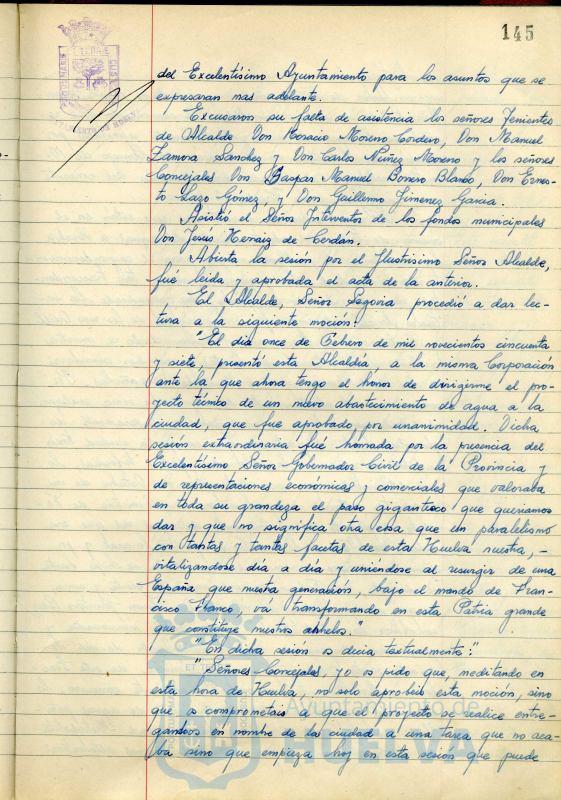 145
del Excelentísimo Ayuntamiento para los asuntos que se
expresaran mas adelante.
Excusaron su falta de asistencia los señores Tenientes
de Alcalde Don Horacio Moreno Cordero, Don Manuel
Zamora Sanchez y Don Carlos Núñez Moreno y los señores
Concejales Don Gaspar Manuel Bonero Blanco, Don Ernes-
to Lazo Gómez, y Don Guillermo Jimenez Garcia.
Asistió el Señor Interventor de los fondos municipales
Don Jesús Hernaiz de Cerdán.
Abierta la sesión por el Ilustrisimo Señor Alcalde,
fué leida y aprobada el acta de la anterior.
El Alcalde, Señor Segovia procedió a dar lec-
tura a la siguiente moción:
"El dia once de Febrero de mil novecientos cincuenta
y siete, presentó esta Alcaldía, a la misma Corporación
ante la que ahora tengo el honor de dirigirme el pro-
yecto técnico de un nuevo abastecimiento de agua a la
ciudad, que fue aprobado, por unanimidad. Dicha
sesión extraordinaria fué honrada por la presencia del
Excelentísimo Señor Gobernador Civil de la Provincia y
de representaciones económicas y comerciales que valoraba
en toda su grandeza el paso gigantisco que queriamos
dar y que no significa otra cosa que un paralelismo
con tantas y tantas facetas de esta Huelva nuestra, -
vitalizandose dia a dia y uniéndose al resurgir de una
España que nuestra generación, bajo el mando de Fran-
cisco Franco, vá transformando en esta Patria grande
que constituye nuestros anhelos."
"En dicha sesión os decia textualmente:"
"Señores Concejales, yo os pido que, meditando en
esta hora de Huelva, no solo aprobéis esta moción, sino
que os comprometais a que el proyecto se realice entre-
gandoos en nombre de la ciudad a una tarea que no aca-
ba sino que empieza hoy en esta sesión que puede
Ayuntamiento de
HUELVA